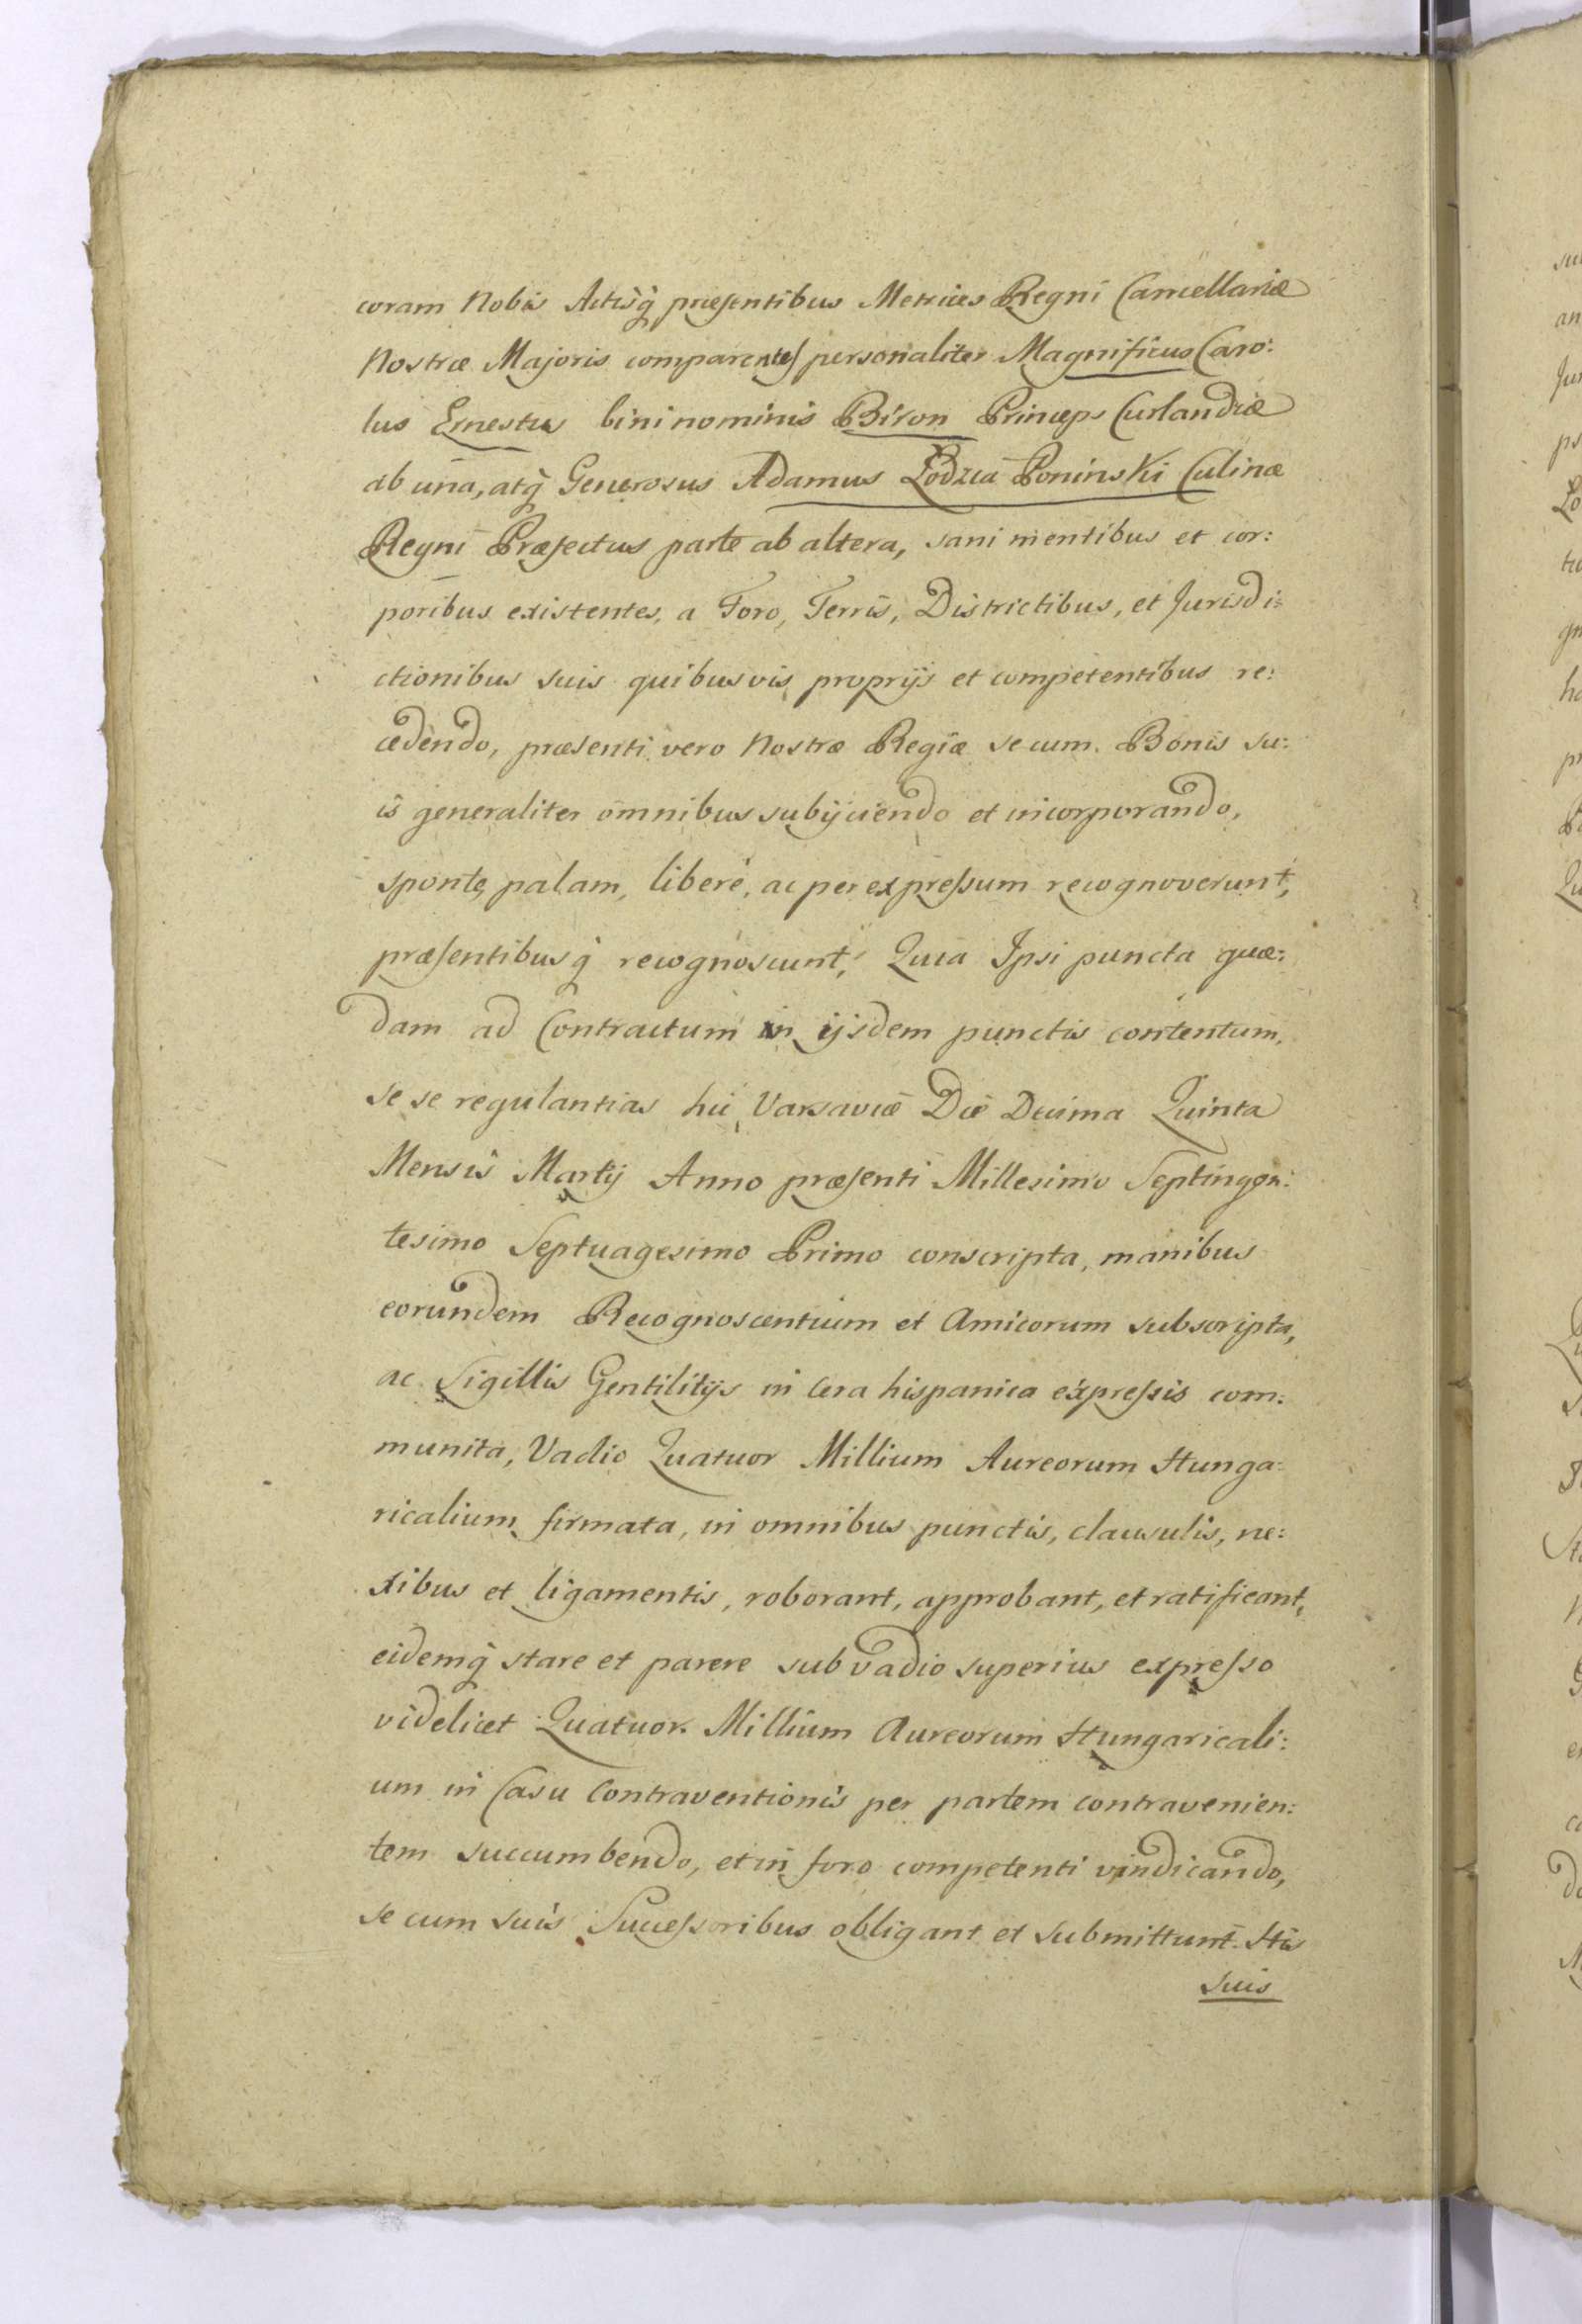 coram Nobis Actisq̀ præsentibus Metrices Regni Cancellariæ
Nostræ Majoris comparentes personaliter Magnificus Caro:
lus Ernestus bininominis Biron Princeps Curlandiæ
ab una, atq̀ Generosus Adamus Łodzia Poninski Culinæ
Regni Præfectus parte ab altera, sani mentibus et cor:
poribus existentes, a Foro, Terris, Districtibus, et Jurisdi:
ctionibus suis quibusvis proprijs et competentibus re:
cedendo, præsenti vero Nostræ Regiæ se cum Bonis su:
is generaliter omnibus subijciendo et incorporando,
sponte, palam, liberè, ac per expressum recognoverunt,
præsentibusq̀ recognoscunt, Quia Ipsi puncta quæ:
dam ad Contractum in ijsdem punctis contentum,
se se regulantias hic Varsaviæ Die Decima Quinta
Mensis Martij Anno præsenti Millesimo Septingen:
tesimo Septuagesimo Primo conscripta, manibus
eorundem Recognoscentium et Amicorum subscripta,
ac Sigillis Gentilitijs in Cera hispanica expressis com:
munita, Vadio Quatuor Millium Aureorum Hunga:
ricalium firmata, in omnibus punctis, clausulis, ne:
xibus et ligamentis, roborant, approbant, et ratificant,
eidemq̀ stare et parere sub vadio superius expresso
videlicet Quatuor Millium Aureorum Hungaricali:
um in Casu Contraventionis per partem contravenien:
tem succumbendo, et in foro competenti vindicando,
se cum suis Successoribus obligant et submittunt. His
suis